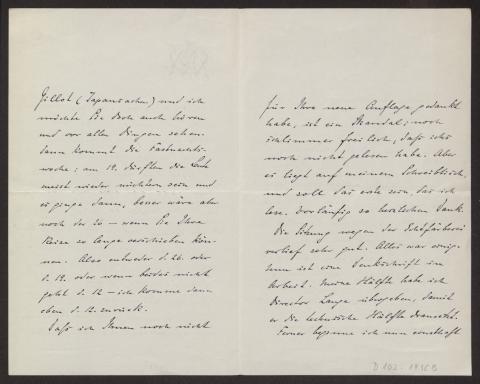 Gillot (Japansachen) und ich
möchte Sie doch auch hören
und vor allen Dingen sehen.
Dann kommt die Fastnachts-
woche; am 19. dürften die Leute
meist wieder nüchtern sein und
es ginge dann, besser wäre aber
noch der 26 – wenn Sie Ihre
Reise so lange verschieben kön-
nen. Also entweder d. 26. oder
d. 19. oder wenn beides nicht
geht d. 12 – ich komme dann
eben d. 12. zurück.
Daß ich Ihnen noch nicht
für Ihre neue Auflage gedankt
habe, ist ein Skandal; noch
schlimmer freilich, daß ichs
noch nicht gelesen habe. Aber
es liegt auf meinem Schreibtisch
und soll das erste sein das ich
lese. Vorläufig so herzlichen Dank.
Die Sitzung wegen der
verlief sehr gut. Alles war einig.
ist eine Denkschrift in
Arbeit. Meine Hälfte habe ich
Director Lange übergeben, damit
er die technische Hälfte
Ferner beginne ich nun ernsthaft
D 102